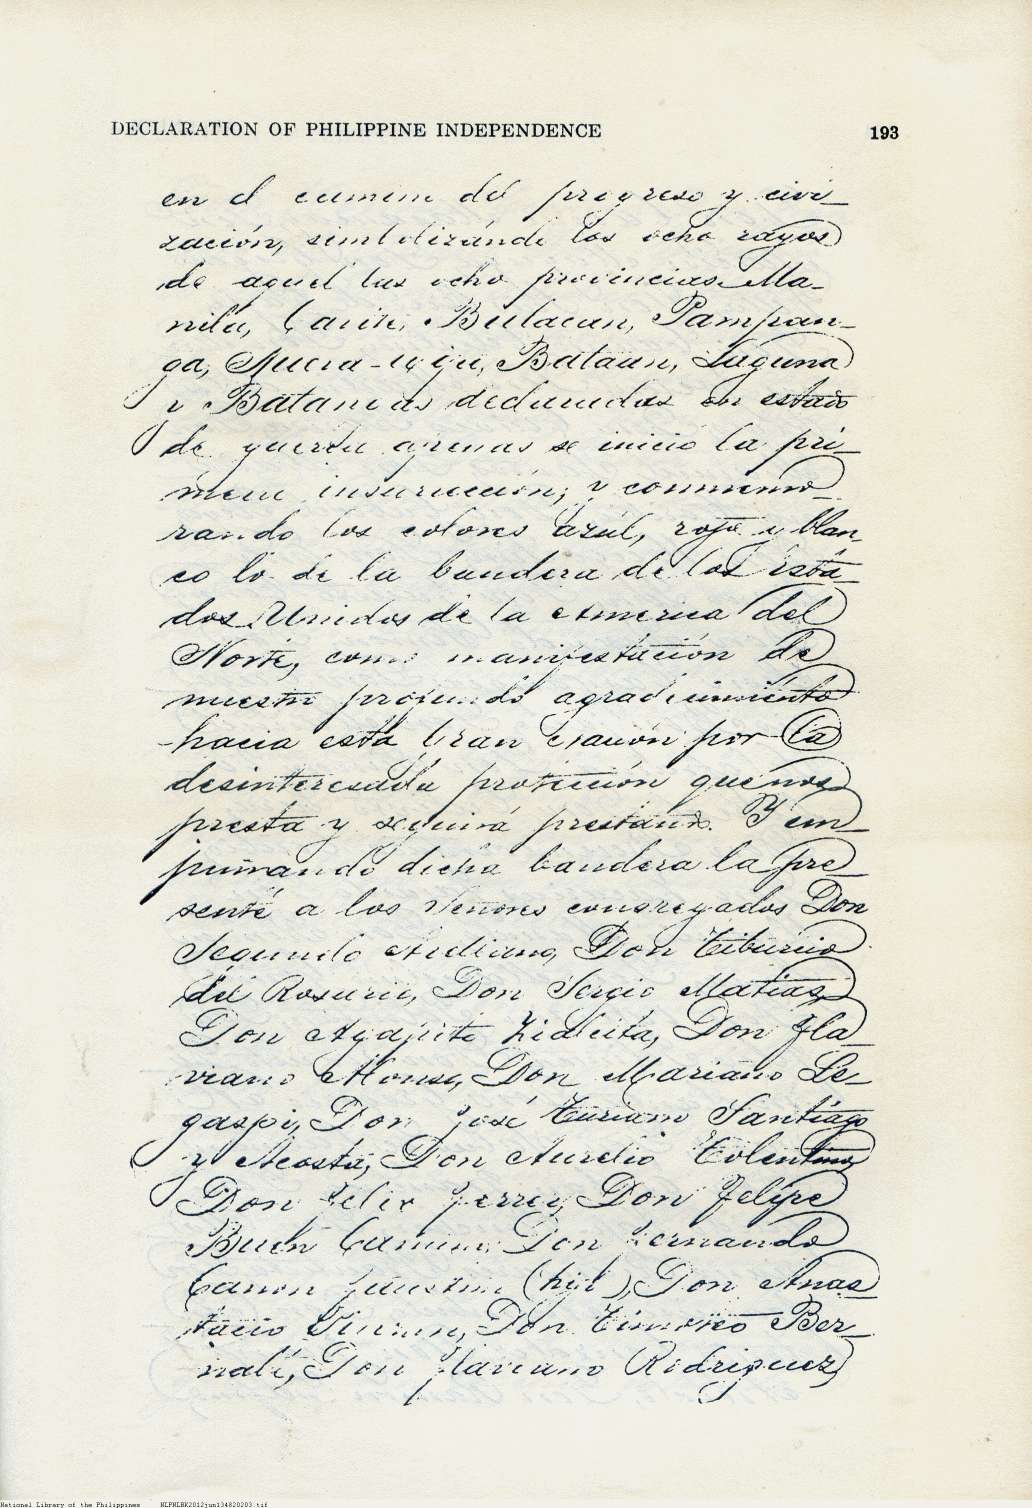 DECLARATION OF PHILIPPINE INDEPENDENCE 193
en el camino del progreso y civi-
zación, simbolizando los ocho rayos
de aquel las ocho provincias Ma-
nila, Cavite, Bulacan, Pampan-
ga, Nueva-Ecija, Bataan, Laguna
y Batangas declaradas en estado
de guerra apenas se inició la pri-
mera insurrección; y conmemo-
rando los colores azul, rojo y blan-
co lo de la bandera de los Esta-
dos Unidos de la America del
Norte, como manifestación de
nuestro profundo agradecimiento
hacia esta Gran Nación por la
desinteresada protección que nos
presta y seguirá prestando. Y em-
puñando dicha bandera la pre-
senté a los Señores congregados Don
Segundo Arellano, Don Tiburcio
del Rosario, Don Sergio Matias,
Don Agapito Zialcita, Don Fla-
viano Alonso, Don Mariano Le-
gaspi, Don José Turiano Santiago
y Acosta, Don Aurelio Tolentino,
Don Felix Ferrer, Don Felipe
Buen Camino, Don Fernando
Canon Faustino (hijo), Don Anas-
tacio Don Timoteo Ber-
nabe, Don Flaviano Rodriguez
National Library of the Philippines NLPNLBK2012jun134820203.tif